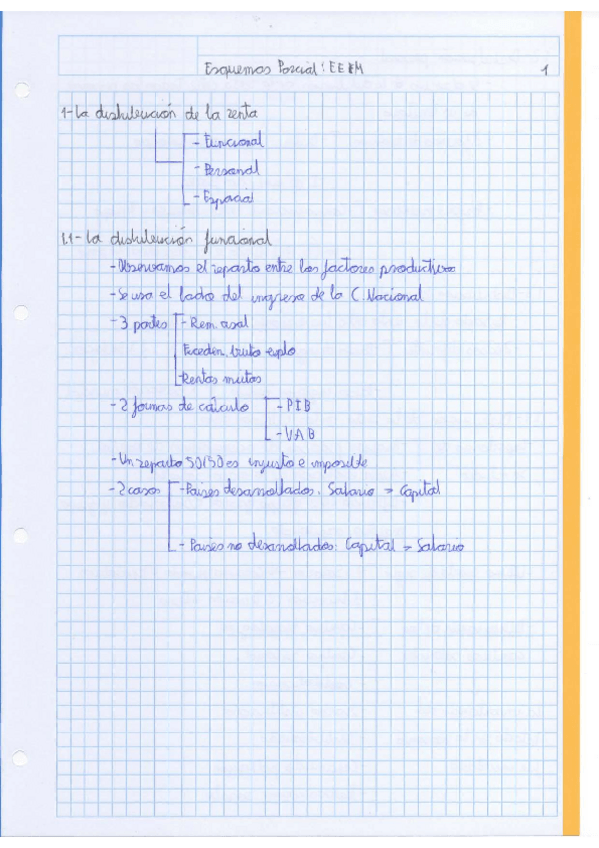 Esquemas Parcial: EEEM 1
1-La distribución de la renta
- Funcional
- Personal
- Espacial
1.1- La distribución funcional
- Observamos el reparto entre los factores productivos
- Se usa el lado del ingreso de la C. Nacional
- 3 partes - Rem. asal
Exceden. bruto explo
- Rentas mixtas
- 2 formas de cálculo - PIB
- VAB
- Un reparto 50/50 es injusto e imposible
- 2 casos - Países desarrollados. Salario > Capital
- Países no desarrollados: Capital > Salario